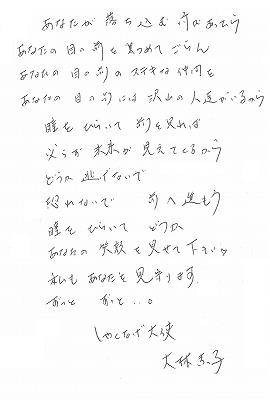 あなたが落ち込む時があったら
あなたの目の前を見つめてごらん
あなたの目の前のステキな仲間を
あなたの目の前には沢山の人達がいるから
瞳をひらいて前を見れば
必らず未来が見えてくるから
どうか逃げないで
恐れないで 前へ進もう
瞳をひらいて どうか
あなたの笑顔を見せて下さい
私もあなたを見守ります。
ずっと ずっと…。
しゃくなげ大使
大林 子